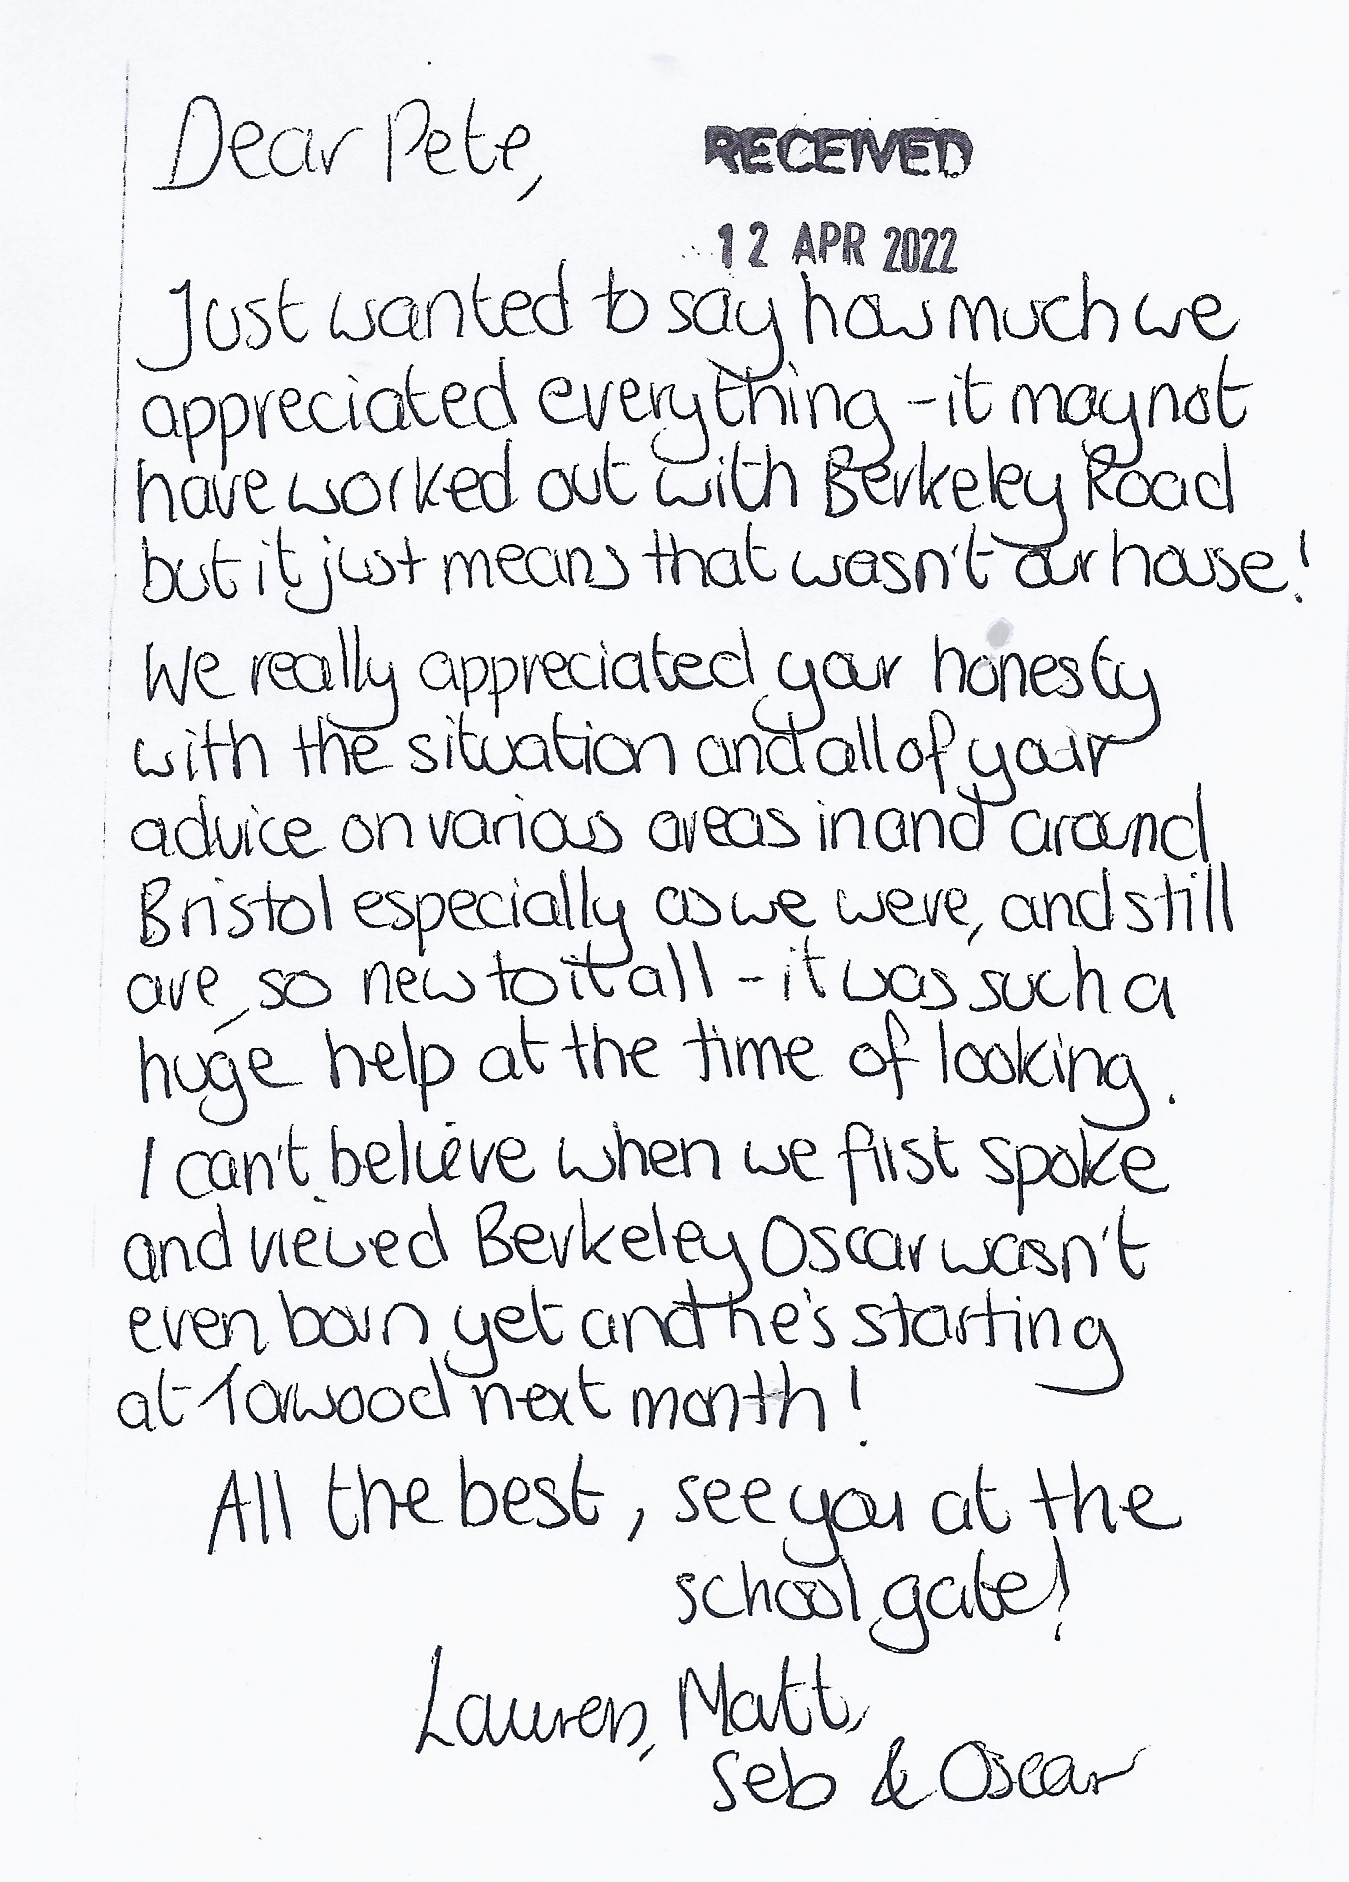 Dear Pete,
RECEIVED
12 APR 2022
Just wanted to say how much we
appreciated everything - it may not
have worked out with Berkeley Road
but it just means that wasn't our house!
We really appreciated your honesty
with the situation and all of your
advice on various areas in and around
Bristol especially as we were, and still
are, so new to it all - it was such a
huge help at the time of looking.
I can't believe when we first spoke
and viewed Berkeley Oscar wasn't
even born yet and he's starting
at Torwood next month!
All the best, see you at the
school gate!
Lauren, Matt,
Seb & Oscar